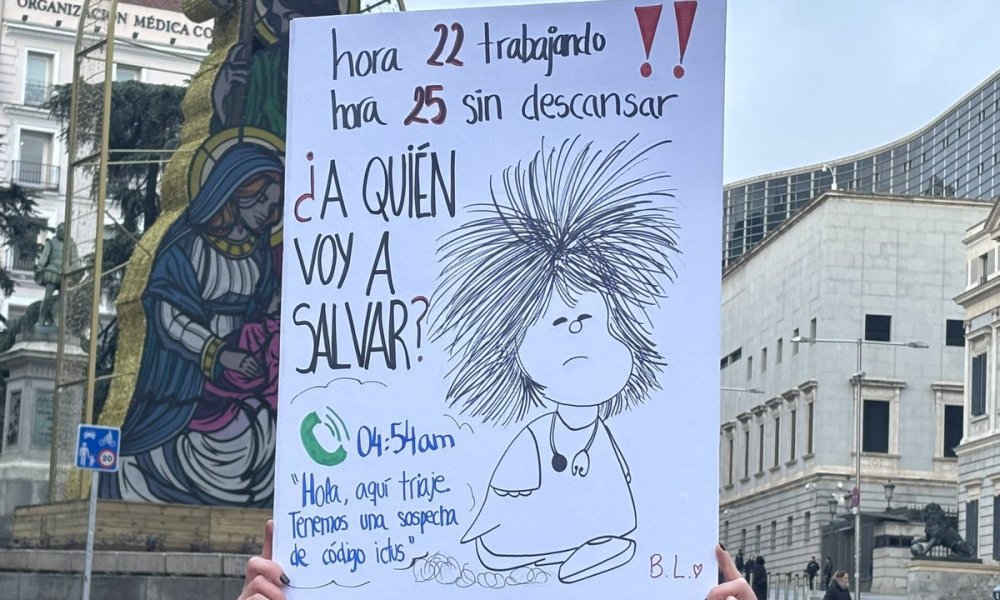 ORGANIZACIÓN MÉDICA CO
hora 22 trabajando !!
hora 25 sin descansar
¿A QUIÉN
VOY A
SALVAR?
04:54am
"Hola, aquí triaje.
Tenemos una sospecha
de código ictus"
B.L.
20